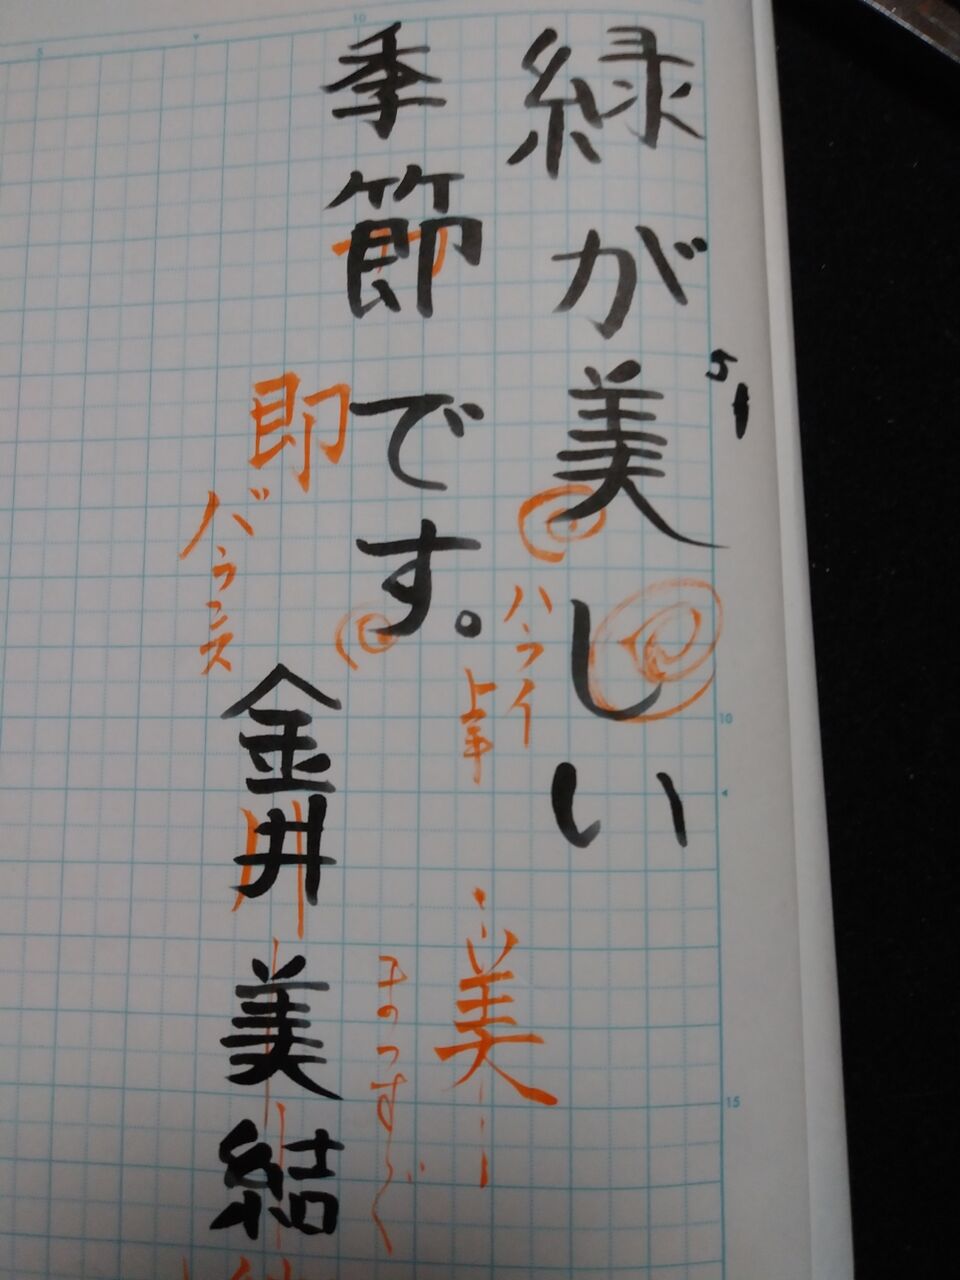 緑が美しい
季節です。
金井美結
5/1
ハライ
上手
美
まっすぐ
即
バランス
10
15
10
5